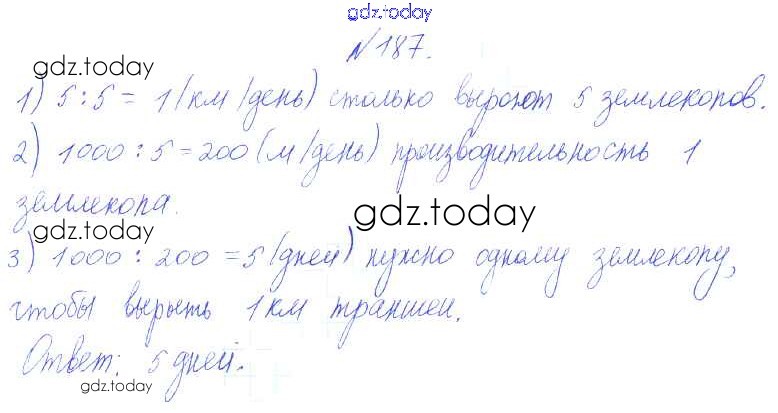 gdz.today
№187.
gdz.today
1) 5:5= 1(км/день) столько выроют 5 землекопов.
2) 1000:5=200(м/день) производительность 1
землекопа.
gdz.today
gdz.today
3) 1000:200=5(дней) нужно одному землекопу,
чтобы вырыть 1км траншеи.
Ответ: 5 дней.
gdz.today